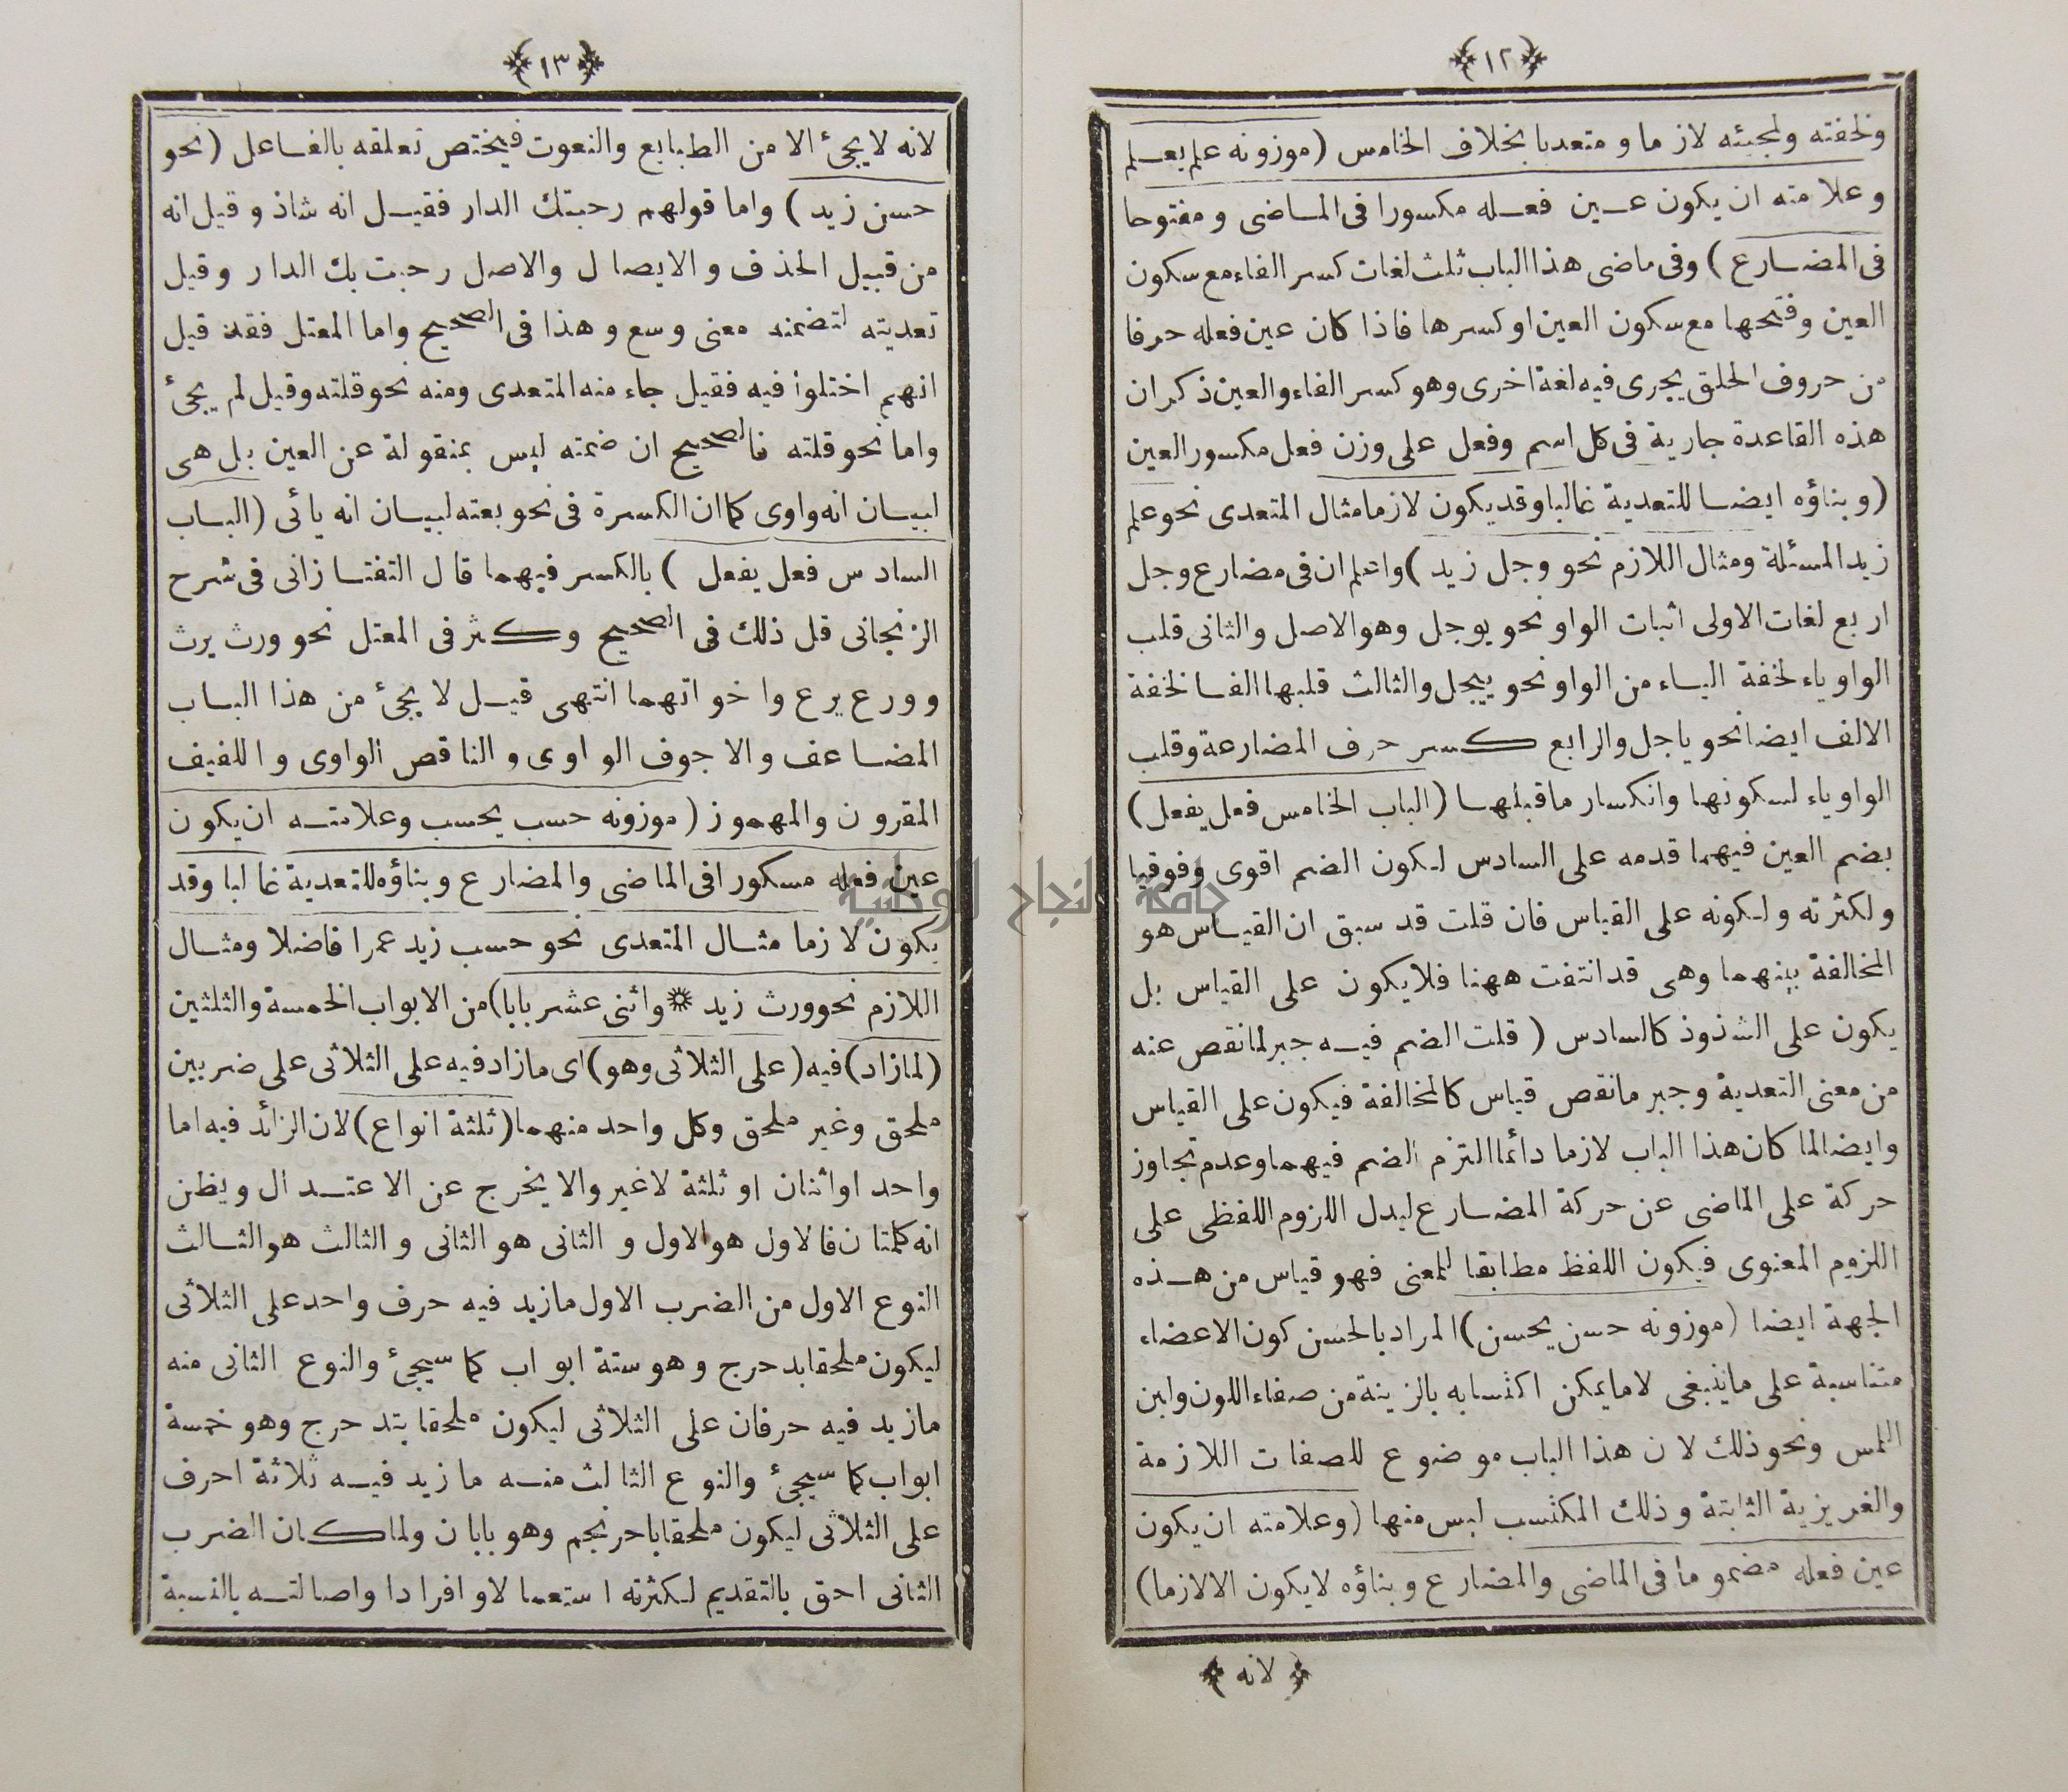 ﴿١٢﴾
ولخفته ولمجيئه لازما ومتعديا بخلاف الخامس (موزونه علم يعلم
وعلامته ان يكون عين فعله مكسورا فى الماضى ومفتوحا
فى المضارع) وفى ماضى هذا الباب ثلث لغات كسر الفاء مع سكون
العين وفتحها مع سكون العين او كسرها فاذا كان عين فعله حرفا
من حروف الحلق يجرى فيه لغة اخرى وهو كسر الفاء والعين ذكر ان
هذه القاعدة جارية فى كل اسم وفعل على وزن فعل مكسور العين
(وبناؤه ايضا للتعدية غالبا وقد يكون لازما مثال المتعدى نحو علم
زيد المسئلة ومثال اللازم نحو وجل زيد) واعلم ان فى مضارع وجل
اربع لغات الاولى اثبات الواو نحو يوجل وهو الاصل والثانى قلب
الواو ياء لخفة الياء من الواو نحو ييجل والثالث قلبها الفا لخفة
الالف ايضا نحو ياجل والرابع كسر حرف المضارعة وقلب
الواو ياء لسكونها وانكسار ما قبلها (الباب الخامس فعل يفعل)
بضم العين فيهما قدمه على السادس لكون الضم اقوى وفوقيا
ولكثرته ولكونه على القياس فان قلت قد سبق ان القياس هو
المخالفة بينهما وهى قد انتفت ههنا فلا يكون على القياس بل
يكون على الشذوذ كالسادس (قلت الضم فيه جبر لما نقص عنه
من معنى التعدية وجبر ما نقص قياس كالمخالفة فيكون على القياس
وايضا لما كان هذا الباب لازما دائما التزم الضم فيهما وعدم تجاوز
حركة على الماضى عن حركة المضارع ليدل اللزوم اللفظى على
اللزوم المعنوى فيكون اللفظ مطابقا للمعنى فهو قياس من هذه
الجهة ايضا (موزونه حسن يحسن) المراد بالحسن كون الاعضاء
متناسبة على ما ينبغى لا ما يمكن اكتسابه بالزينة من صفاء اللون ولين
اللمس ونحو ذلك لان هذا الباب موضوع للصفات اللازمة
والغريزية الثابتة وذلك المكتسب ليس منها (وعلامته ان يكون
عين فعله مضموما فى الماضى والمضارع وبناؤه لا يكون الا لازما)
﴿لانه﴾
﴿١٣﴾
لانه لا يجئ الا من الطبايع والنعوت فيختص تعلقه بالفاعل (نحو
حسن زيد) واما قولهم رحبتك الدار فقيل انه شاذ وقيل انه
من قبيل الحذف والايصال والاصل رحبت بك الدار وقيل
تعديته لتضمنه معنى وسع وهذا فى الصحيح واما المعتل فقد قيل
انهم اختلوا فيه فقيل جاء منه المتعدى ومنه نحو قلته وقيل لم يجئ
واما نحو قلته فالصحيح ان ضمته ليس بمنقولة عن العين بل هى
لبيان انه واوى كما ان الكسرة فى نحو بعته لبيان انه يائى (الباب
السادس فعل يفعل) بالكسر فيهما قال التفتازانى فى شرح
الزنجانى قل ذلك فى الصحيح وكثر فى المعتل نحو ورث يرث
وورع يرع واخواتهما انتهى قيل لا يجئ من هذا الباب
المضاعف والاجوف الواوى والناقص الواوى واللفيف
المقرون والمهموز (موزونه حسب يحسب وعلامته ان يكون
عين فعله مسكورا فى الماضى والمضارع وبناؤه للتعدية غالبا وقد
يكون لازما مثال المتعدى نحو حسب زيد عمرا فاضلا ومثال
اللازم نحو ورث زيد * واثنى عشر بابا) من الابواب الخمسة والثلثين
(لما زاد) فيه (على الثلاثى وهو) اى ما زاد فيه على الثلاثى على ضربين
ملحق وغير ملحق وكل واحد منهما (ثلثة انواع) لان الزائد فيه اما
واحد او اثنان او ثلثة لا غير والا يخرج عن الاعتدال ويظن
انه كلمتان فالاول هو الاول والثانى هو الثانى والثالث هو الثالث
النوع الاول من الضرب الاول ما زيد فيه حرف واحد على الثلاثى
ليكون ملحقا بدحرج وهو ستة ابواب كما سيجئ والنوع الثانى منه
ما زيد فيه حرفان على الثلاثى ليكون ملحقا بتدحرج وهو خمسة
ابواب كما سيجئ والنوع الثالث منه ما زيد فيه ثلاثة احرف
على الثلاثى ليكون ملحقا باحرنجم وهو بابان ولما كان الضرب
الثانى احق بالتقديم لكثرته استعمالا وافرادا واصالته بالنسبة
جامعة النجاح الوطنية